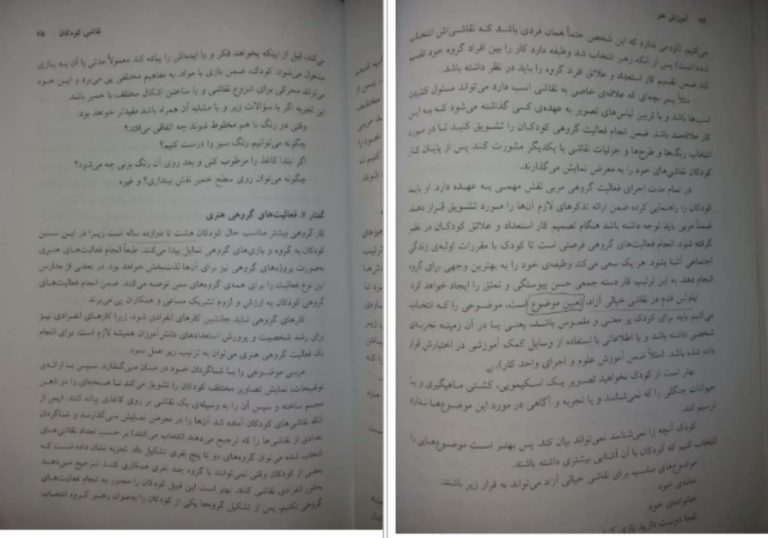 نقاشی کودکان ۷۵
می‌کند، قبل از اینکه بخواهد فکر و یا ایده‌اش را پیاده کند معمولاً مدتی با آن به بازی
مشغول می‌شود. کودک، ضمن بازی با مواد، به مفاهیم مختلفی پی می‌برد و این خود
می‌تواند محرکی برای شروع نقاشی و یا ساختن اشکال مختلف با خمیر باشد.
این تجربه اگر با سؤالات زیر و یا مشابه آن همراه باشد مفیدتر خواهد بود:
وقتی دو رنگ با هم مخلوط شوند چه اتفاقی می‌افتد؟
چگونه می‌توانیم رنگ سبز را درست کنیم؟
اگر ابتدا کاغذ را مرطوب کنی و بعد روی آن رنگ بزنی چه می‌شود؟
چگونه می‌توان روی سطح خمیر نقش بیندازی؟ و غیره
گفتار ۷. فعالیت‌های گروهی هنری
کار گروهی بیشتر مناسب حال کودکان هشت تا دوازده ساله است زیرا در این سنین
کودکان به گروه و بازی‌های گروهی تمایل پیدا می‌کنند. طبعاً انجام فعالیت‌های هنری
به‌صورت پروژه‌های گروهی نیز برای آن‌ها لذت‌بخش خواهد بود. در بعضی از مدارس
این نوع فعالیت را برای همه‌ی گروه‌های سنی توصیه می‌کنند. ضمن انجام فعالیت‌های
گروهی کودکان به ارزش و لزوم تشریک مساعی و همکاران پی می‌برند.
کارهای گروهی نباید جانشین کارهای انفرادی شود، زیرا کارهای انفرادی نیز
برای رشد شخصیت و پرورش استعدادهای دانش‌آموزان همیشه لازم است. برای انجام
یک فعالیت گروهی هنری می‌توان به ترتیب زیر عمل نمود
مربی موضوعی را با شاگردان خود در میان می‌گذارد سپس با ارائه‌ی
توضیحات، نمایش تصاویر مختلف کودکان را تشویق می‌کند تا صحنه‌ای را در ذهن
مجسم ساخته و سپس آن را به‌وسیله‌ی یک نقاشی بر روی کاغذی پیاده کنند. (پس از
آنکه نقاشی‌های کودکان آماده شد آن‌ها را در معرض نمایش می‌گذارند و شاگردان
تعدادی از نقاشی‌ها را که ترجیح می‌دهند انتخاب می‌کنند) بر حسب تعداد نقاشی‌های
انتخاب شده می‌توان گروه‌های دو تا پنج نفری تشکیل داد. تجربه نشان داده است که
بعضی از کودکان وقتی نمی‌توانند با گروه چند نفری همکاری کنند. ترجیح می‌دهند
به‌طور انفرادی نقاشی کنند. بهتر است این قبیل کودکان را مجبور به انجام فعالیت‌های
گروهی نکنیم. پس از تشکیل گروه‌ها یکی از کودکان را به‌عنوان رهبر گروه انتخاب
۷۶ آموزش هنر
می‌کنیم. (لزومی ندارد که این شخص حتماً همان فردی باشد که نقاشی‌اش انتخاب
شده است) پس از آنکه رهبر انتخاب شد وظیفه دارد کار را بین افراد گروه خود تقسیم
کند ضمن تقسیم کار استعداد و علائق افراد گروه را باید در نظر داشته باشد.
مثلاً پسر بچه‌ای که علاقه‌ی خاصی به نقاشی اسب دارد می‌تواند مسئول کشیدن
اسب‌ها باشد و یا تزیین لباس‌های تصویر به عهده‌ی کسی گذاشته می‌شود که به این
کار علاقه‌مند باشد. ضمن انجام فعالیت گروهی کودکان را تشویق کنید تا در مورد
انتخاب رنگ‌ها و طرح‌ها و جزئیات نقاشی با یکدیگر مشورت کنند. پس از پایان کار
کودکان نقاشی‌های خود را به معرض نمایش می‌گذارند.
در تمام مدت اجرای فعالیت گروهی مربی نقش مهمی به عهده دارد. او باید
کودکان را راهنمایی کرده ضمن ارائه تذکرهای لازم آن‌ها را مورد تشویق قرار دهد.
ضمناً مربی باید توجه داشته باشد هنگام تصمیم کار استعداد و علائق کودکان در نظر
گرفته شود. انجام فعالیت‌های گروهی فرصتی است تا کودک با مقررات اولیه‌ی زندگی
اجتماعی آشنا بشود. هر یک سعی می‌کند وظیفه‌ی خود را به بهترین وجهی برای گروه
انجام دهد. به این ترتیب کار دسته جمعی حسن پیوستگی و تعلق را ایجاد خواهد کرد.
اولین قدم در نقاشی خیالی آزاد، تعیین موضوع است، موضوعی را که انتخاب
می‌کنیم باید برای کودک پر معنی و ملموس باشد، یعنی یا در آن زمینه تجربه‌ی
شخصی داشته باشد و یا اطلاعاتی با استفاده از وسایل کمک آموزشی در اختیارش قرار
داده شده باشد. (مثلاً ضمن آموزش علوم و اجرای واحد کار).
بهتر است از کودک نخواهید تصویر یک اسکیمویی، کشتی ماهیگیری و یا
حیوانات جنگلی را که نمی‌شناسد و یا تجربه و آگاهی در مورد این موضوع‌ها ندارد
ترسیم کند.
کودک آنچه را نمی‌شناسد نمی‌تواند بیان کند. پس بهتر است موضوع‌هایی را
انتخاب کنیم که کودکان با آن آشنایی بیشتری داشته باشند.
موضوع‌های مناسب برای نقاشی خیالی آزاد می‌تواند به قرار زیر باشند:
خانه‌ی خود
خانواده‌ی خود
کجا دوست دارید بازی